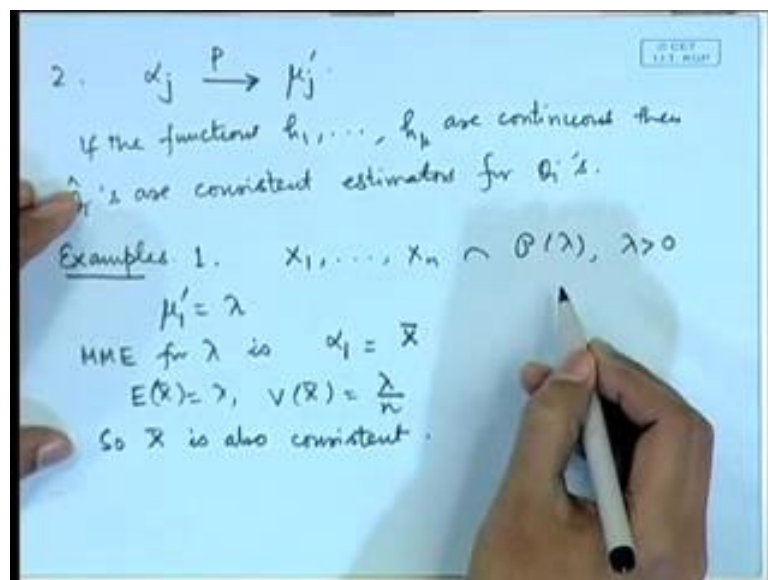 2. αj P→ μj'.
If the functions h1, ..., hk are continuous then
θ̂i's are consistent estimators for θi's.
Examples 1. X1, ..., Xn ~ P(λ), λ>0
μ1' = λ
MME for λ is α1 = X̄
E(X̄)=λ, V(X̄) = λ/n
So X̄ is also consistent.